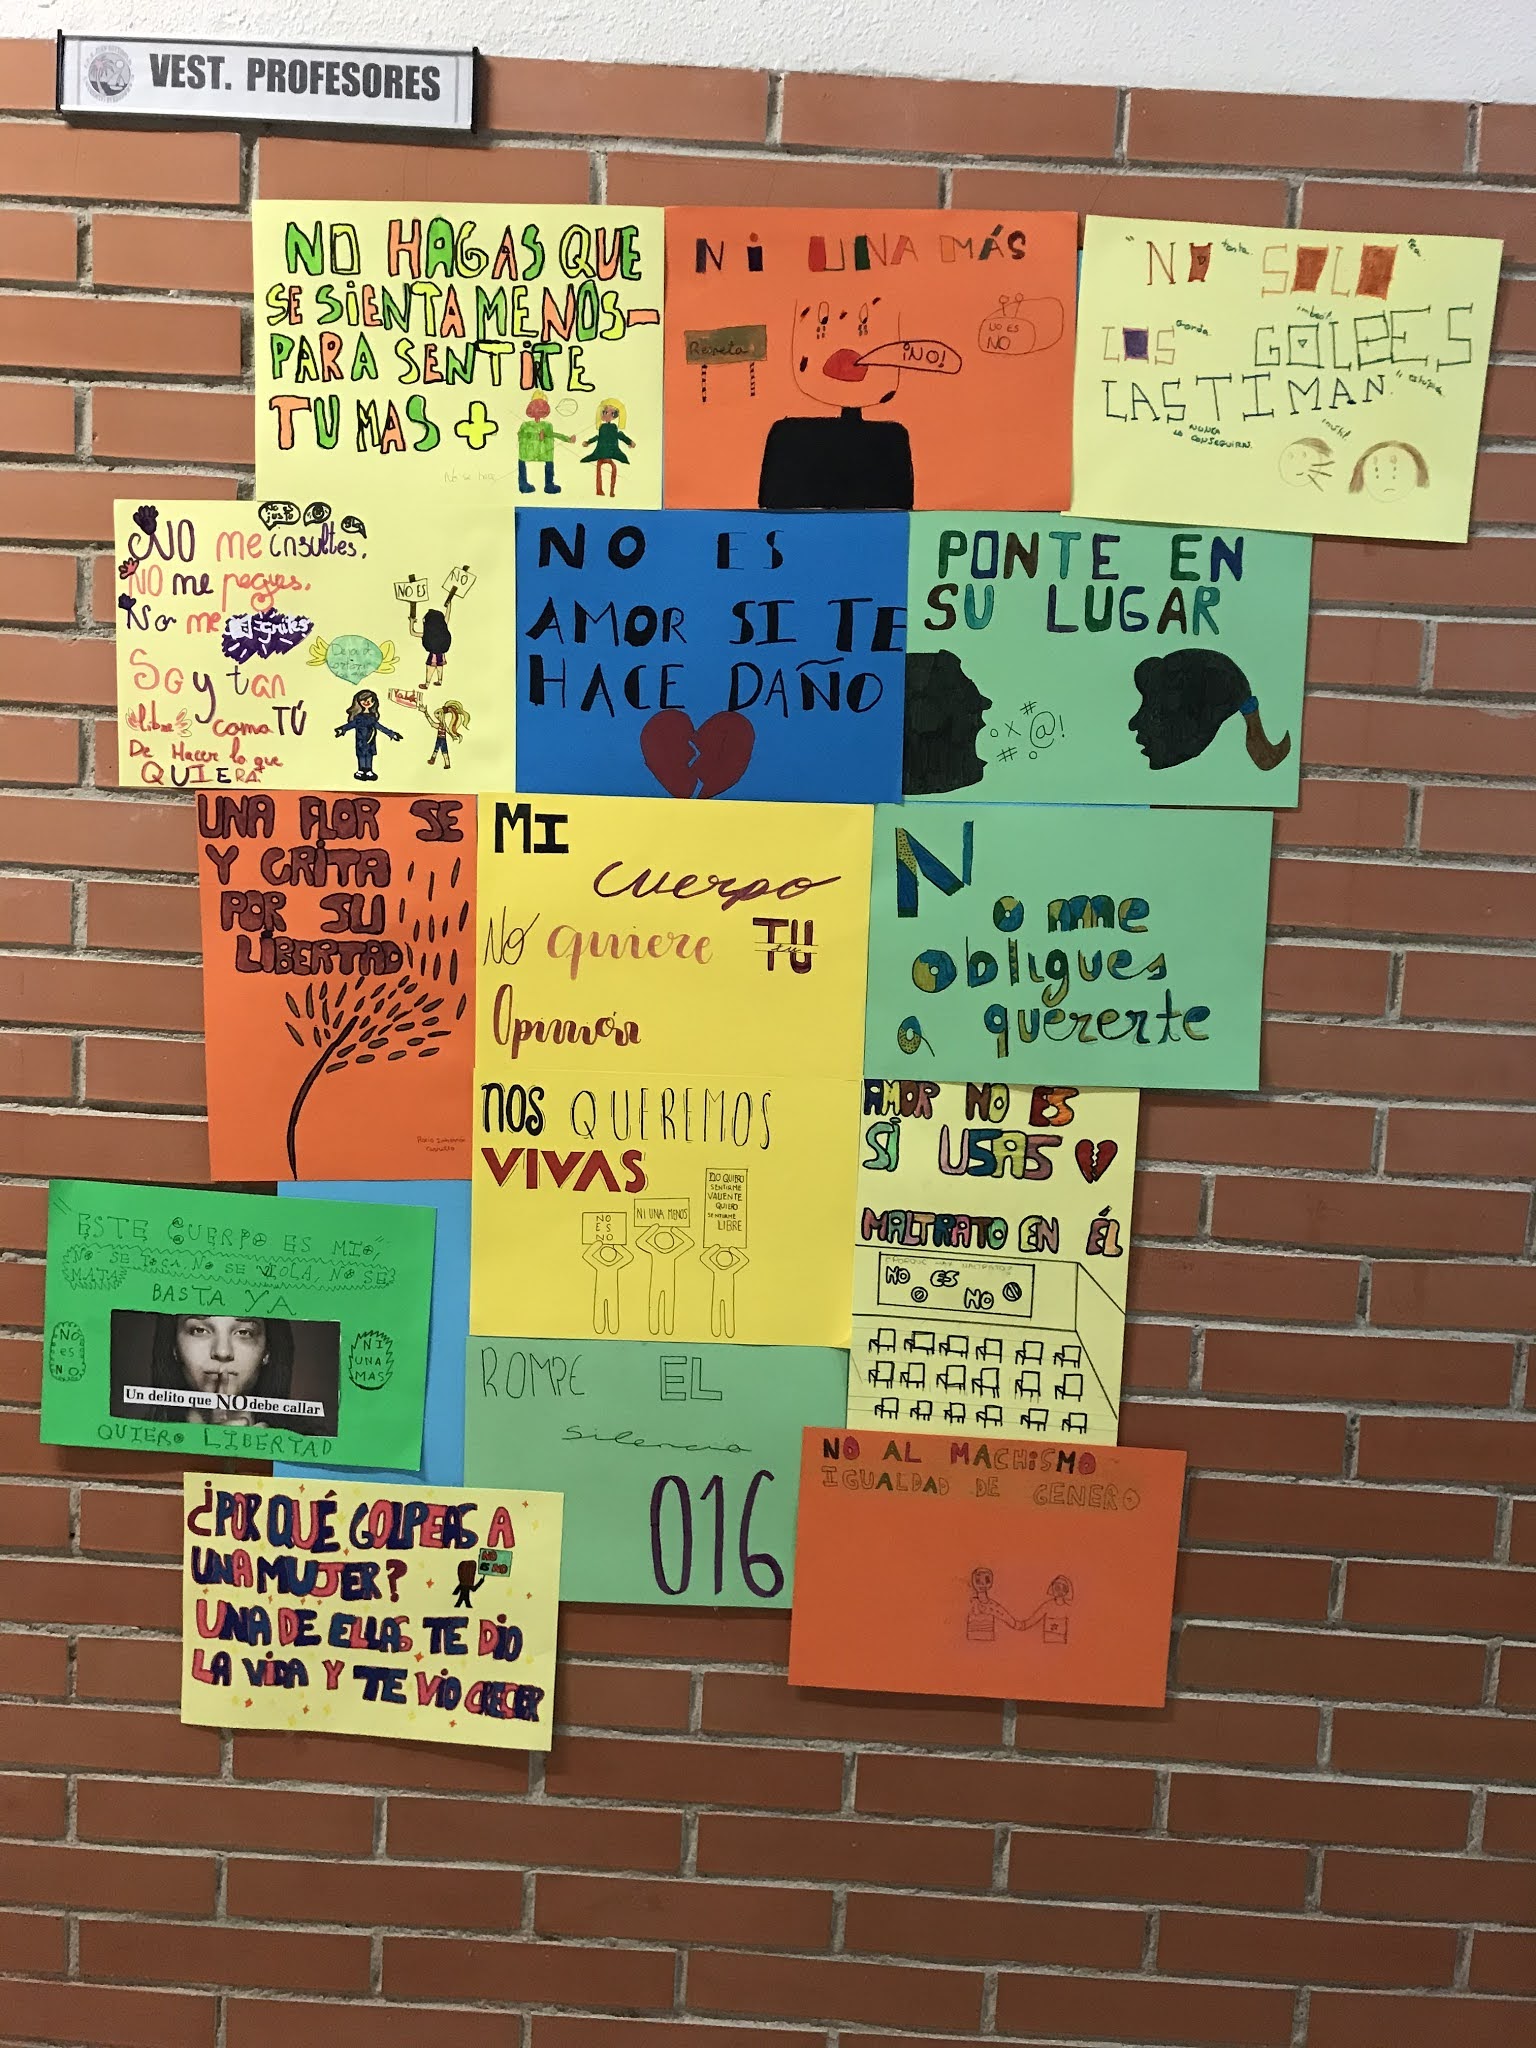 VEST. PROFESORES
NO HAGAS QUE
SE SIENTA MENOS-
PARA SENTIRTE
TU MAS +
NI UNA MÁS
Respeta
¡NO!
NO ES
NO
"NO SOLO
LOS GOLPES
LASTIMAN."
tonta
gorda
NUNCA
LO CONSEGUIRÁS
NO ES
JUSTO
NO me insultes.
NO me pegues.
No me grites
Soy tan
libre como TÚ
De Hacer lo que
QUIERA
NO ES
NO
NO ES
AMOR SI TE
HACE DAÑO
PONTE EN
SU LUGAR
#
o X @!
# o
UNA FLOR SE
Y GRITA
POR SU
LIBERTAD
MI
cuerpo
No quiere TU
Opinión
No me
obligues
a quererte
NOS QUEREMOS
VIVAS
NO
ES
NO
NI UNA MENOS
NO QUIERO
SENTIRME
VALIENTE
QUIERO
SENTIRME
LIBRE
AMOR NO ES
SÍ USAS
MALTRATO EN ÉL
NO ES
NO
"ESTE CUERPO ES MIO"
NO SE TOCA, NO SE VIOLA, NO SE
MATA
BASTA YA
NO
es
NO
NI
UNA
MAS
Un delito que NO debe callar
QUIERO LIBERTAD
ROMPE EL
silencio
016
NO AL MACHISMO
IGUALDAD DE GENERO
¿POR QUÉ GOLPEAS A
UNA MUJER?
NO
ES NO
UNA DE ELLAS TE DIO
LA VIDA Y TE VIO CRECER